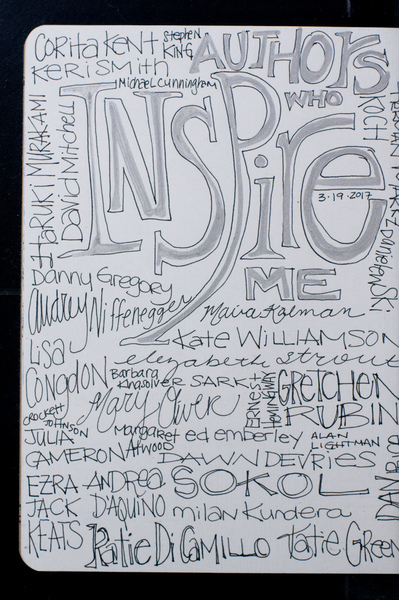 CORITA KENT
STEPHEN
KING
AUTHORS
KERI SMITH
Michael Cunningham
WHO
INSPIRE
3·19·2017
ME
HARUKI MURAKAMI
David Mitchell
RICH
Danielewski
Danny Gregory
Audrey Niffenegger
Maira Kalman
Kate WILLIAMSON
elizabeth strout
LISA
CONGDON
Barbara
Kingsolver
SARK
ERNEST
HEMINGWAY
GRETCHEN
RUBIN
Mary Oliver
CROCKETT
JOHNSON
JULIA
CAMERON
Margaret
Atwood
ed emberley
ALAN
LIGHTMAN
DAWN DEVRIES
SOKOL
EZRA
JACK
KEATS
ANDREA
D'AQUINO
milan Kundera
Katie DiCAMILLO
Katie GREEN